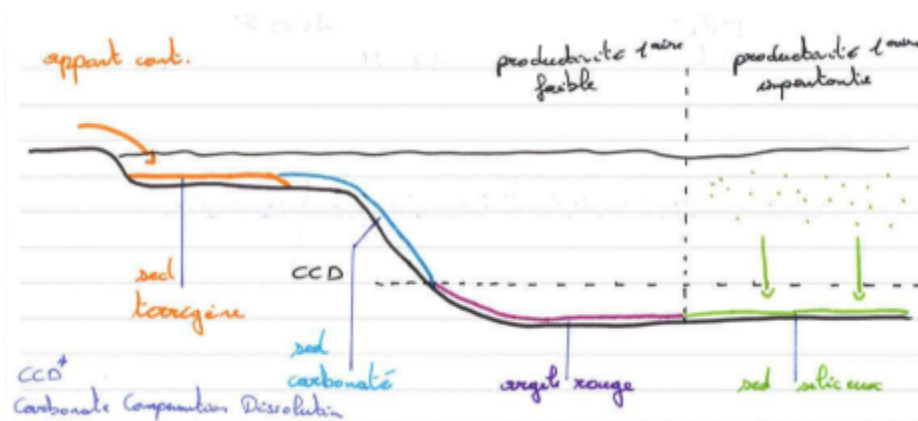 apport cont.
productivité 1aire
faible
productivité 1aire
importante
sed
terrigène
CCD
sed
carbonaté
argile rouge
sed siliceux
CCD*
Carbonate Compensation Dissolution